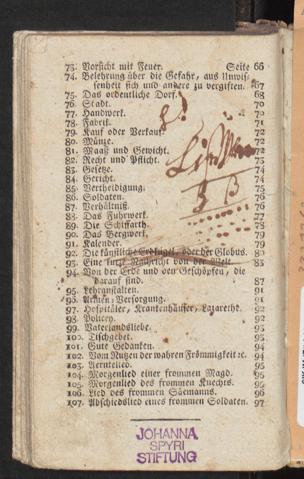 73. Vorsicht mit Feuer. Seite 66
74. Belehrung über die Gefahr, aus Unwis-
senheit sich und andere zu vergiften. 67
75. Das ordentliche Dorf. 68
76. Stadt. 70
77. Handwerk. 70
78. Fabrik. 71
79. Kauf oder Verkauf. 72
80. Münze. 72
81. Maaß und Gewicht. 72
82. Recht und Pflicht. 73
83. Gesetze. 74
84. Gericht. 74
85. Vertheidigung. 75
86. Soldaten. 76
87. Verhältniß. 76
88. Das Fuhrwerk. 77
89. Die Schiffarth. 78
90. Das Bergwerk. 79
91. Kalender. 79
92. Die künstliche Erdkugel, oder der Globus. 80
93. Eine kurze Nachricht von der Welt. 83
94. Von der Erde und den Geschöpfen, die
darauf sind. 87
95. Lehranstalten. 91
96. Armen-Versorgung. 91
97. Hospitäler, Krankenhäuser, Lazarethe. 92
98. Policey. 92
99. Vaterlandsliebe. 93
100. Tischgebet. 93
101. Gute Gedanken. 94
102. Vom Nutzen der wahren Frömmigkeit ꝛc. 94
103. Aerntelied. 95
104. Morgenlied einer frommen Magd. 95
105. Morgenlied des frommen Knechts. 95
106. Lied des frommen Säemanns. 96
107. Abschiedslied eines frommen Soldaten. 97
JOHANNA
SPYRI
STIFTUNG